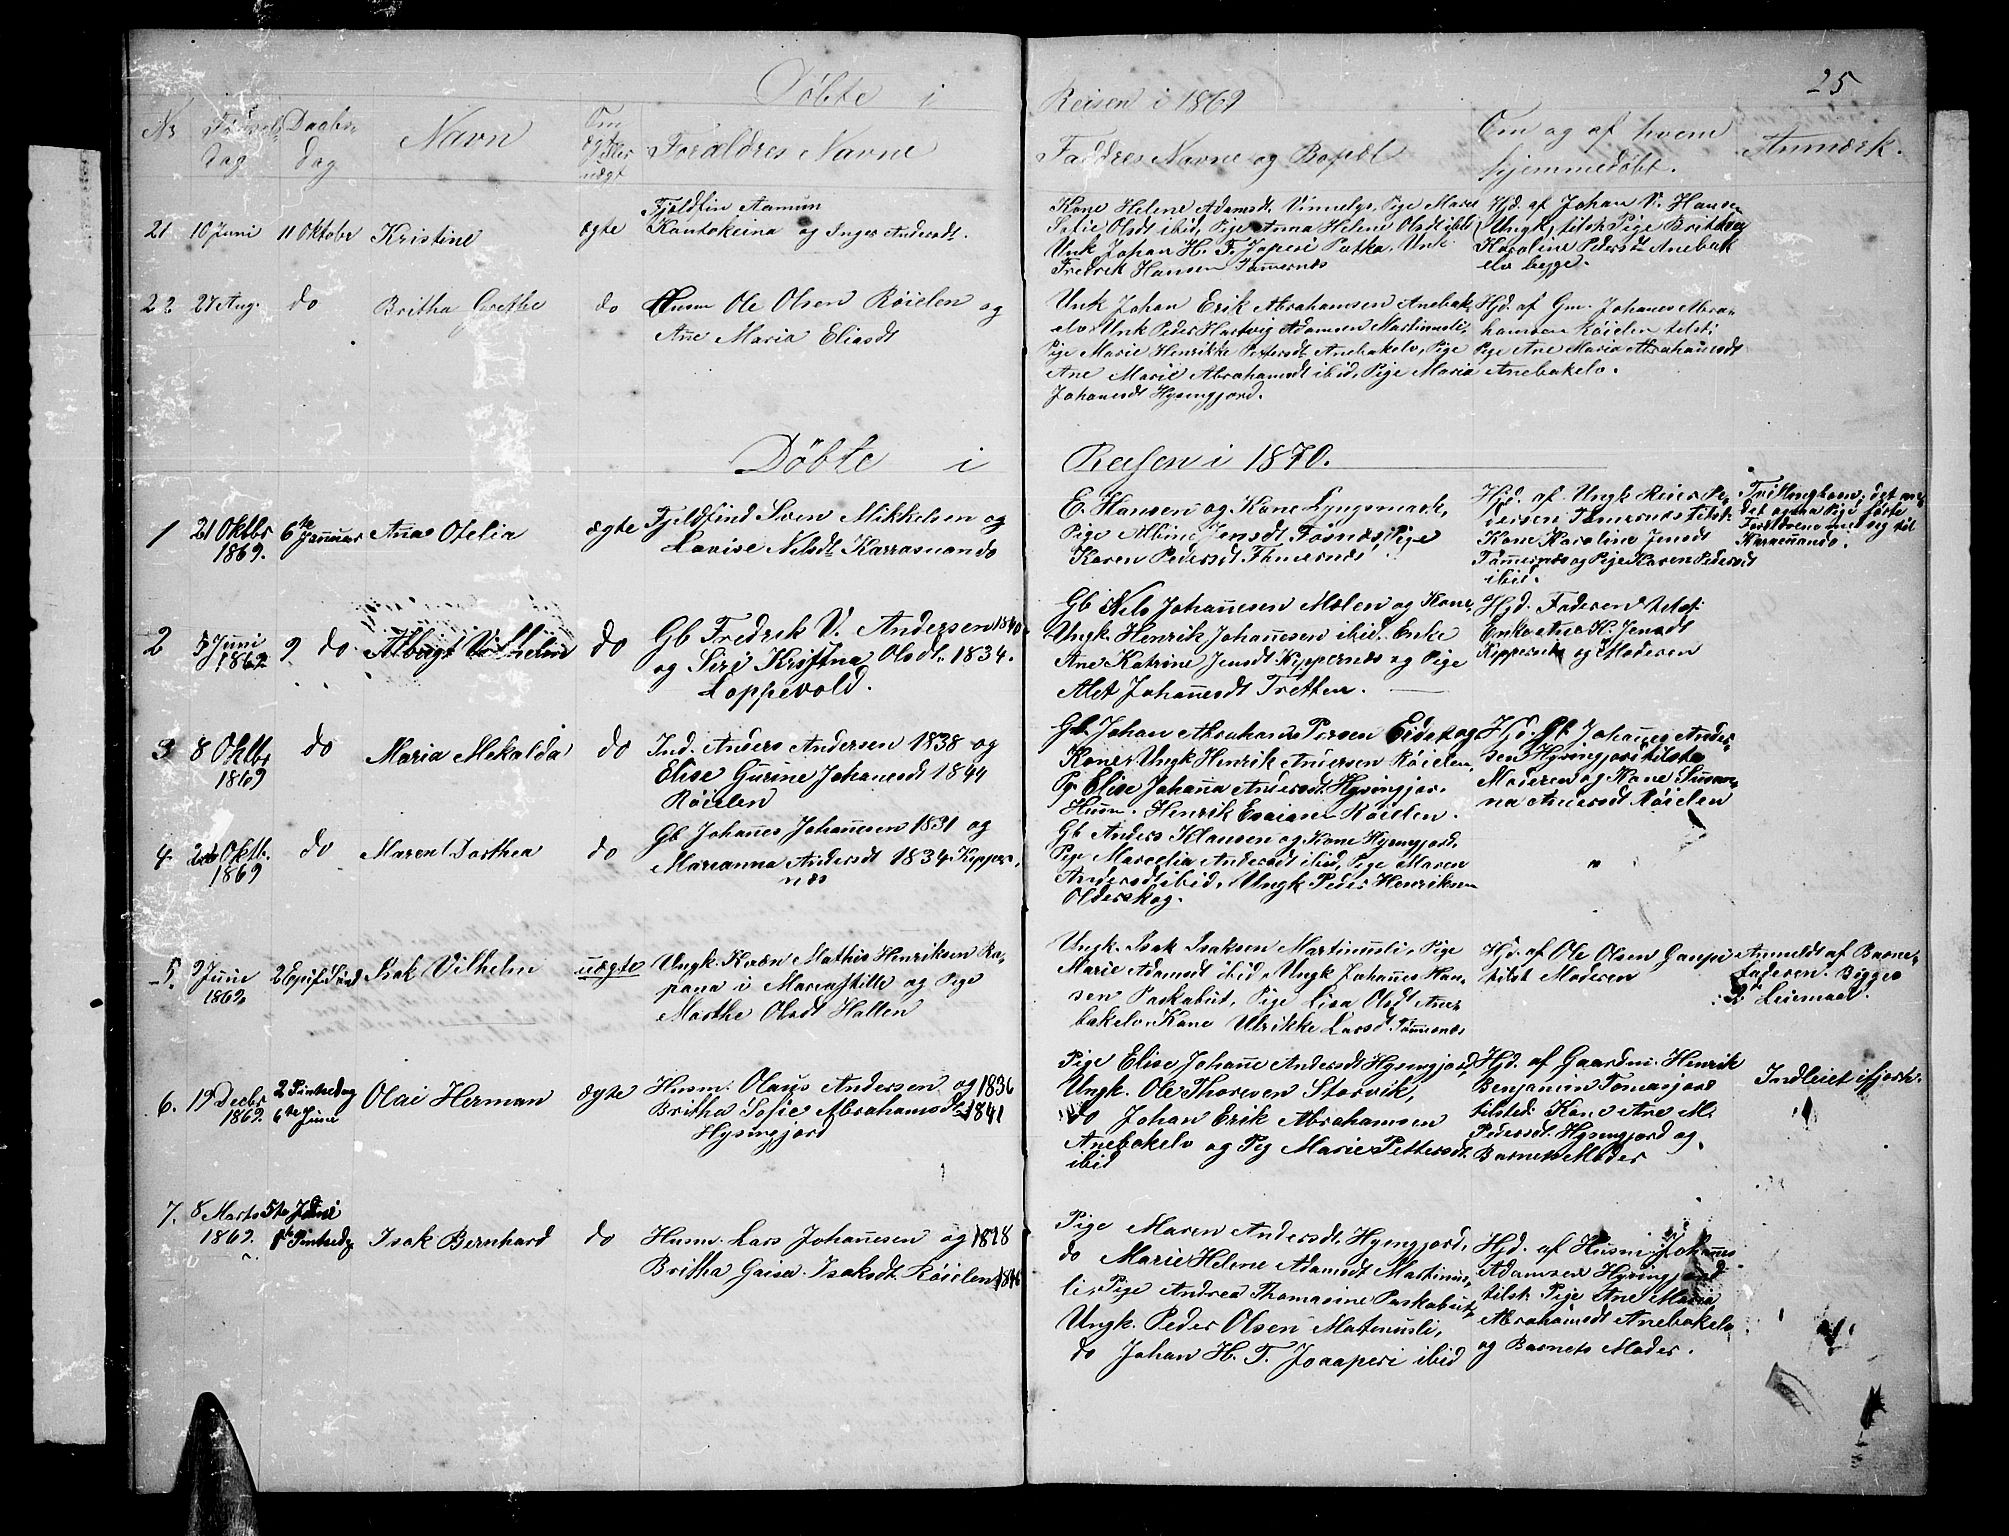 25
Döbte i Reisen i 1869
Nr Fødsels dag Daabs dag Navn Om ægte eller uægt Forældres Navne Faddres Navne og Bopæl Om og af hvem hjemmedöbt. Anmærk.
21 10 Juni 11 Oktober Kristine ægte Fjeldfin Aamun
Kautokeino og Inger Andersdt.
Kone Helene Adamsdt. Vinnelys, Pige Marie
Sofie Olsdt ibid, Pige Anna Helene Olsdt ibid
Unk Johan H. T. Joperi Patka, Unk
Fredrik Hansen Tømernæs
Hjd. af Johan V. Hansen
(Ungk) tilst. Pige Britha og
Karoline Pedersdt Anebak
elv begge.
22 27 Aug. do Britha Grethe do Husm Ole Olsen Röielen og
Ane Maria Eliasdt
Unk Johan Erik Abrahamsen Anebak
elv, Unk Peder Hartvig Adamsen Martinusli,
Pige Marie Henrikke Petersdt Anebakelv, Pige
Ane Marie Abrahamsdt ibid, Pige Maria
Johanesdt Hysingjord.
Hjd. af Gm. Johanes Abra-
hamsen Röielen tilst:
Pige Ane Maria Abrahamsdt
Anebakelv.
Döbte i Reisen i 1870.
1 21 Oktbr 1869. 6te Januar Ana Otelia ægte Fjeldfind Sven Mikkelsen og
Lovise Nilsdt Karrasuando
E. Hansen og Kone Lyngsmark,
Pige Albine Jensdt Fosnæs, Pige
Karen Pedersdt Tömernæs
Hjd. af Ungk Reier Pe-
dersen Tömernæs tilst:
Kone Karoline Jensdt
Tömernæs og Pige Karen Pedersdt
ibid.
Trillingbarn, det an
det ogsaa Pige førte
Forældrene med sig til
Karesuando.
2 5 Juni 1869 9 do Albrigt Vilhelm do Gb Fredrik V. Andersen 1840
og Siri Kristina Olsdt. 1834.
Loppevold.
Gb Nils Johannesen Molen og Kone
Ungk. Henrik Johannesen ibid. Enke
Ane Katrine Jensdt. Kippernæs og Pige
Alet Johannesdt Tretten.
Hjd. Faderen tilst:
Enke Ane K. Jensdt
Kippernæs og Moderen
3 8 Oktbr 1869 do Maria Mekalda do Ind. Anders Andersen 1838 og
Elise Gurine Johanesdt 1844
Röielen
Gb. Johan Abraham Persen Eidskog
Kone, Ungk Henrik Andersen Röielen,
Pg. Elise Johanna Andersdt. Hysingjor.
Husm. Henrik Esaisen Röielen.
Hjd. Gb Johannes Ander
sen Hysingjord tilst.
Moderen og Kone Susan
na Andersdt Röielen
4. Oktb. 1869 do Maren Dorthea do Gb Johanes Johannesen 1831 og
Marianna Andersdt 1834. Kipper
næs
Gb Anders Klausen og Kone Hysingjord,
Pige Marcelia Andersdt ibid, Pige Maren
Andersdt ibid, Ungk Peder Henriksen
Olderskog.
"
5. 9 Junie 1869 2 Epif. Sönd Isak Vilhelm uægte Ungk. Kvæn Mathis Henriksen Ra-
pana i Mariastille og Pige
Marthe Olsdt Hallen
Ungk. Isak Isaksen Martinusli, Pige
Marie Adamsdt ibid, Ungk Johannes Han-
sen Paskabut, Pige Lisa Olsdt Ane-
bakelv, Kone Ulrikke Larsdt. Tömernæs
Hjd. af Ole Olsen Gaupe
tilst Moderen
Anmeldt af Barne-
faderen. Bigges
Leiemaal.
6. 19 Decbr 1869. 2 Pintsedag 6te June Olai Herman ægte Husm. Olaus Andersen og 1836
Britha Sofie Abrahamsdt 1841
Hysingjord
Pige Elise Johanne Andersdt Hysingjord,
Ungk. Ole Thoresen Storvik,
do Johan Erik Abrahamsen
Anebakelv og Pig Marie Pettersdt
ibid
Hjd. af Gaardm. Henrik
Benjamin Tomasjord
tilsted. Kone Ane M.
Pedersdt. Hysingjord og
Barnets Moder
Indleiet i fjorh.
7. 8 Marts 1869. 5te June Pintsedg Isak Bernhard do Husm. Lars Johannesen og 1818
Britha Gaisa Isaksdt Röielen
Pige Maren Andersdt. Hysingjord,
do Marie Helene Adamsdt Martinus
li, Pige Andrea Thomasine Paskabut,
Ungk. Peder Olsen Matinusli,
do Johan H. T. Joaaperi ibid
Hjd. af Husm. Johannes
Adamsen Hysingjord
tilst. Pige Ane Maria
Abrahamsdt Anebakelv
og Barnets Moder.
"